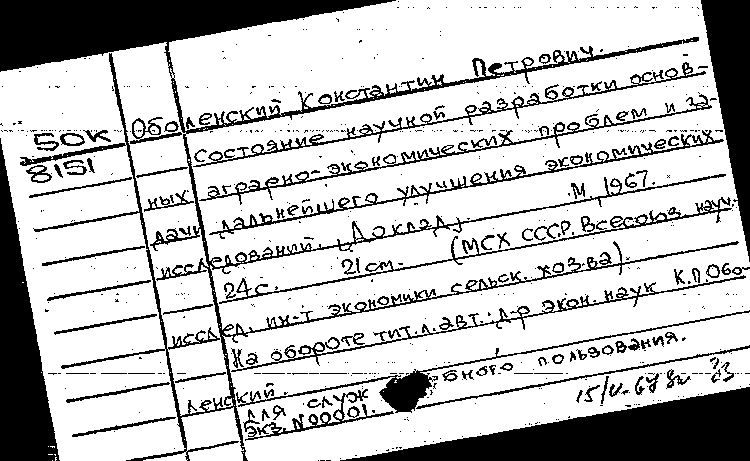 50К
8151
Оболенский, Константин Петрович.
Состояние научной разработки основ-
ных аграрно-экономических проблем и за-
дачи дальнейшего улучшения экономических
исследований. [Доклад]. М., 1967.
24 с. 21 см. (МСХ СССР. Всесоюз. науч.-
исслед. ин-т экономики сельск. хоз-ва).
На обороте тит. л. авт.: д-р экон. наук К.П. Обо-
ленский.
Для служ бного пользования.
Экз. N 00001.